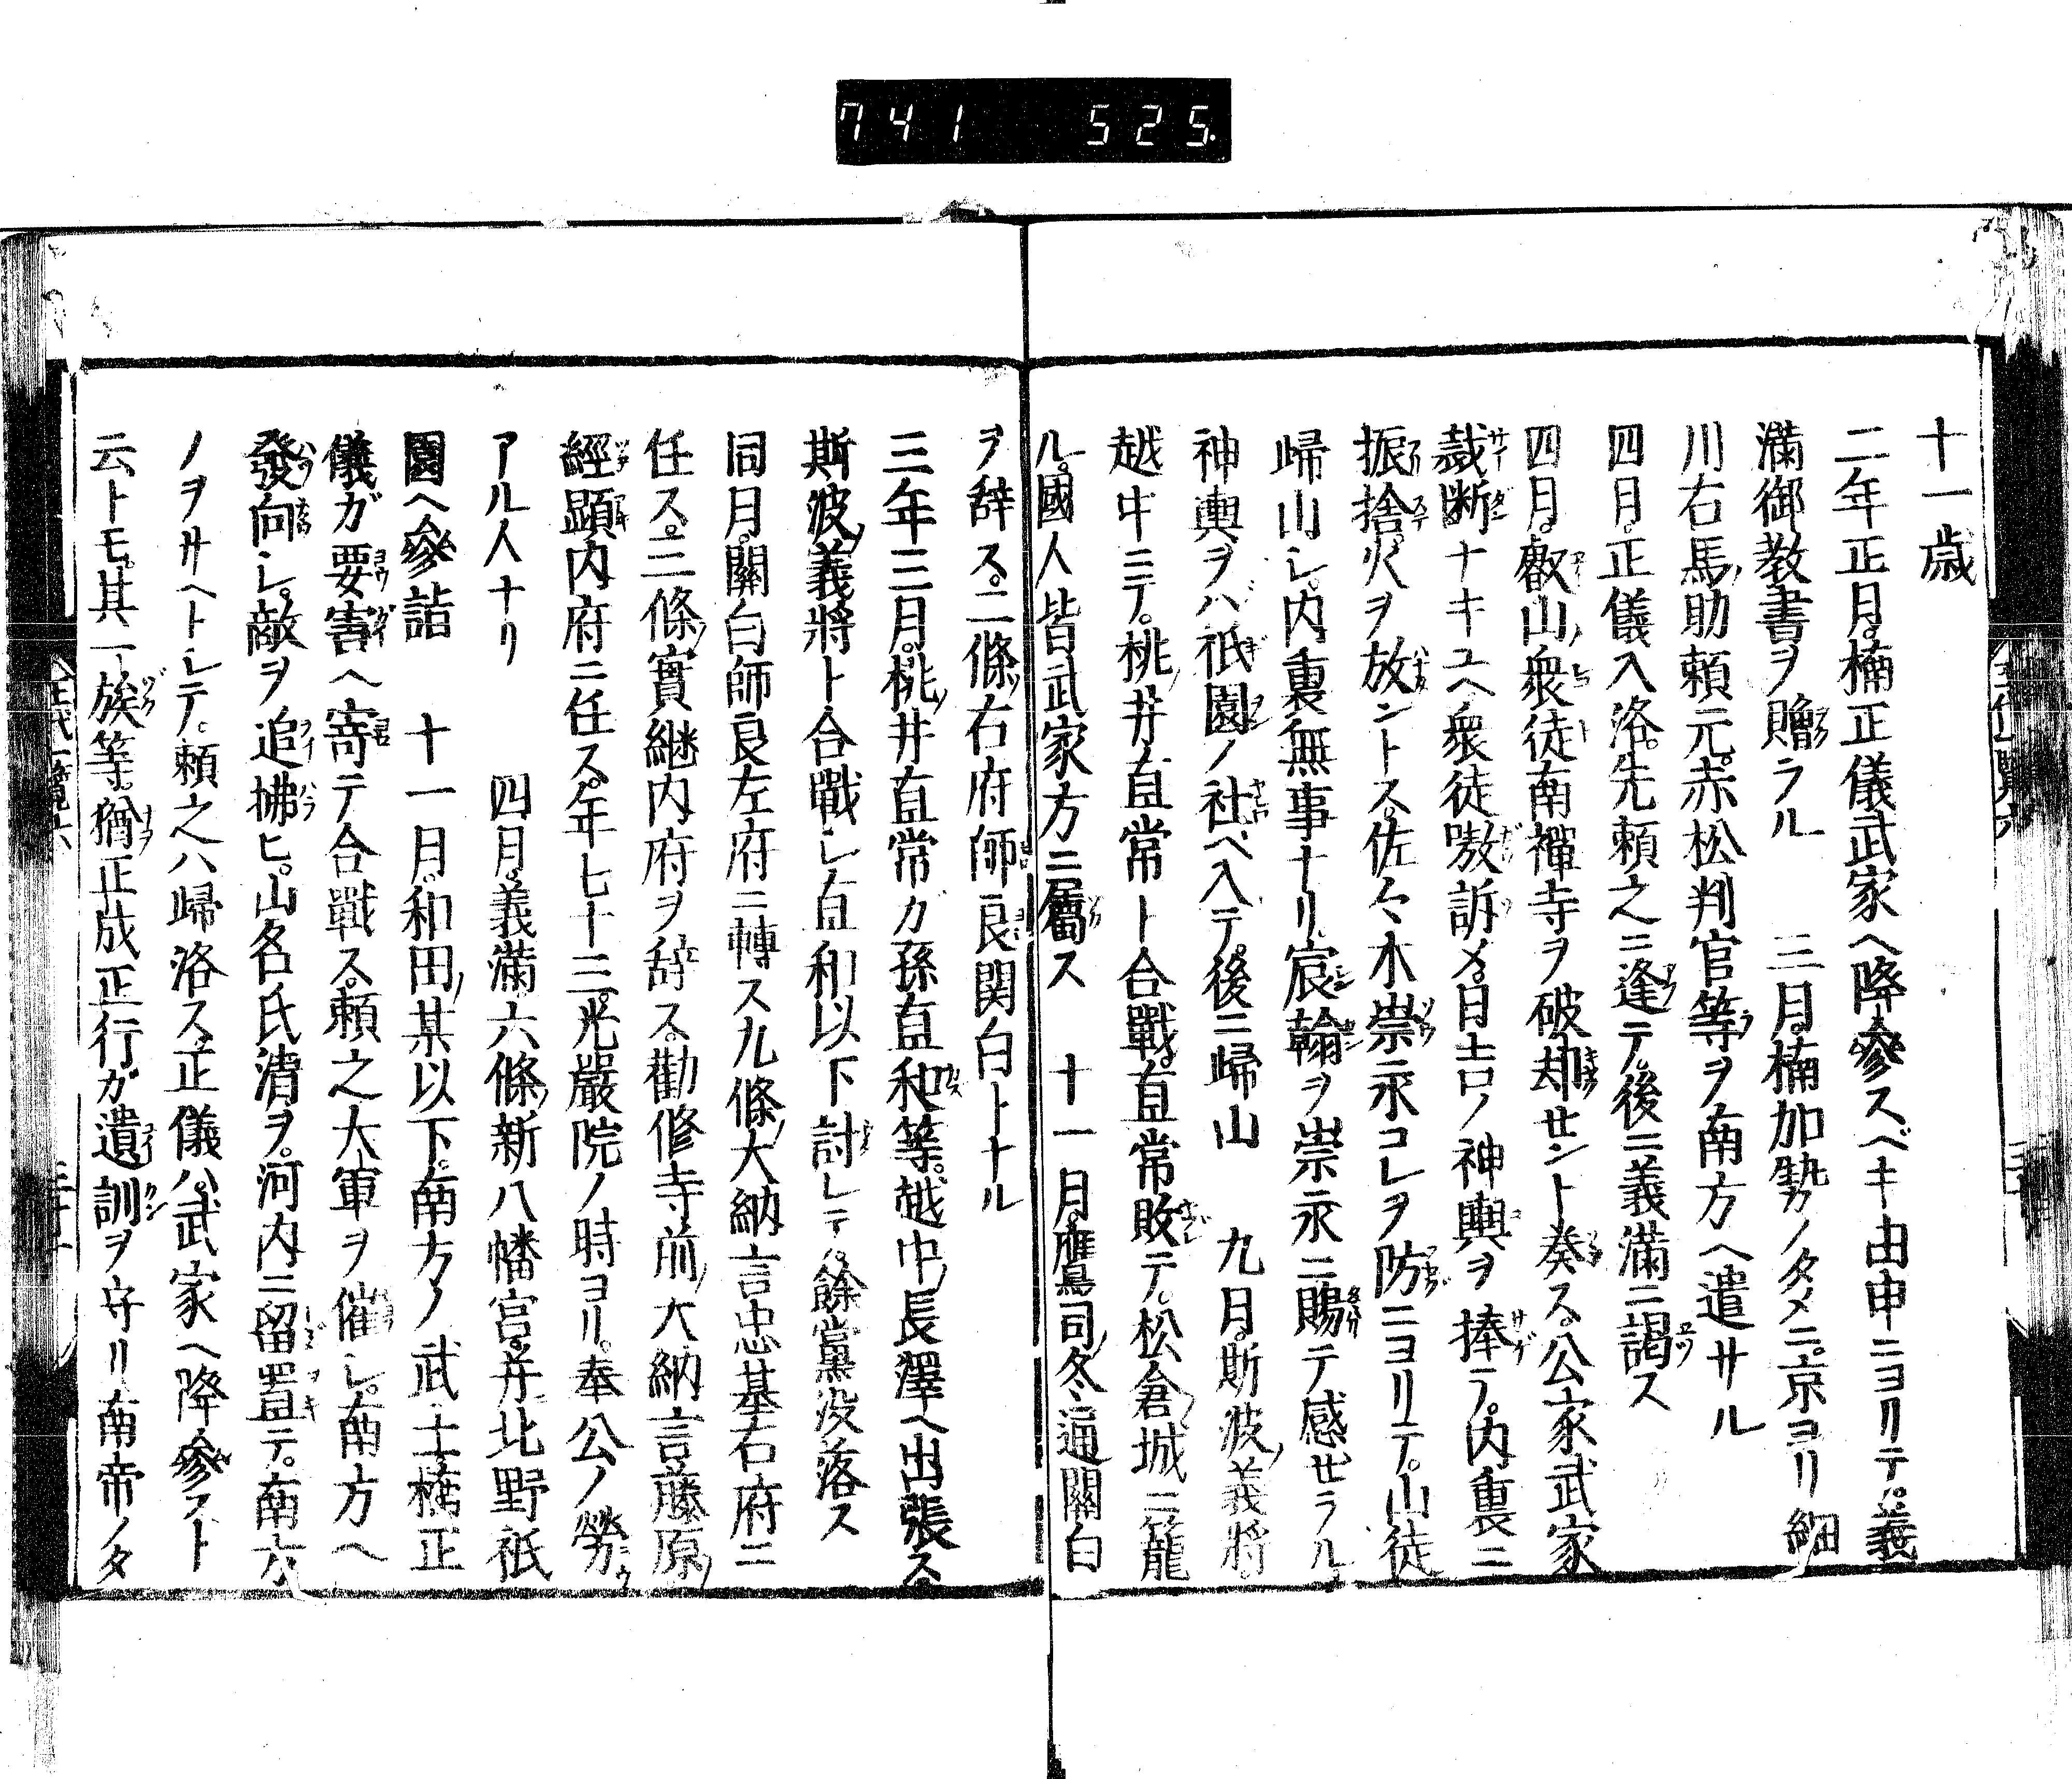 741 525.
十一歳
二年正月。楠正儀武家ヘ降參スベキ由申ニヨリテ。義
滿御教書ヲ贈ラル 三月。楠加勢ノタメニ。京ヨリ細
川右馬助頼元。赤松判官等ヲ南方ヘ遣サル
四月。正儀入洛。先頼之ニ逢テ。後ニ義滿ニ謁ス
四月。叡山ノ衆徒南禪寺ヲ破却せント奏ス。公家武家
裁断ナキユヘ衆徒嗷訴メ。日吉ノ神輿ヲ捧テ。内裏ニ
振捨。火ヲ放ントス。佐々木崇永コレヲ防ニヨリテ。山徒
歸山シ。内裏無事ナリ。宸翰ヲ崇永ニ賜テ感せラル
神輿ヲハ祇園ノ社ヘ入テ。後ニ歸山 九月。斯波義將。
越中ニテ。桃井直常ト合戰。直常敗テ。松倉城ニ籠
ル。國人皆武家方ニ屬ス 十一月。鷹司冬通關白
ヲ辞ス。二條右府師良関白トナル
三年三月。桃井直常ガ孫直和等。越中長澤ヘ出張ス。
斯波義將ト合戰シ直和以下討レテ。餘黨没落ス
同月。關白師良左府ニ轉ス九條大納言忠基右府ニ
任ス。三條實継内府ヲ辞ス。勸修寺前大納言藤原
經顕内府ニ任ス。年七十三。光嚴院ノ時ヨリ。奉公ノ勞
アル人ナリ 四月。義滿六條新八幡宮。并北野祇
園ヘ參詣 十一月。和田某以下。南方ノ武士楠正
儀ガ要害ヘ寄テ合戰ス。頼之大軍ヲ催シ。南方ヘ
發向シ。敵ヲ追拂ヒ。山名氏清ヲ。河内ニ留置テ。南方
ノヲサヘトシテ。頼之ハ歸洛ス正儀ハ。武家ヘ降參スト
云トモ。其一族等。猶正成正行ガ遺訓ヲ守リ南帝ノタ